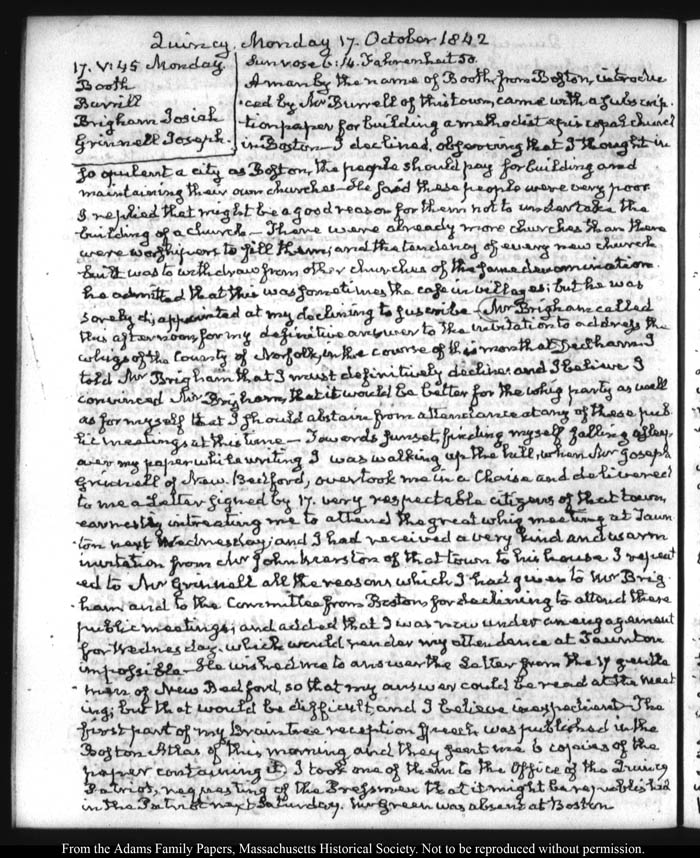 Quincy, Monday 17. October 1842
17. V:45 Monday
Booth
Burrill
Brigham Josiah
Grinnell Joseph.
Sun rose 6:14. Fahrenheit 50.
A man by the name of Booth from Boston, introdu-
ced by Mr Burrell of this town, came with a subscrip-
tion paper for building a methodist episcopal church
in Boston — I declined, observing that I thought in
so opulent a city as Boston, the people should pay for building and
maintaining their own churches — He said these people were very poor.
I replied that might be a good reason for them not to undertake the
building of a church — There were already more churches than there
were worshippers to fill them; and the tendency of every new church
built was to withdraw from other churches of the same denomination
he admitted that this was sometimes the case in villages; but he was
sorely disappointed at my declining to subscribe — Mr Brigham called
this afternoon for my definitive answer to the invitation to address the
whigs of the County of Norfolk, in the course of this month at Dedham. I
told Mr Brigham that I must definitively decline. and I believe I
convinced Mr Brigham, that it would be better for the whig party as well
as for myself that I should abstain from attendance at any of these pub-
lic meetings at this time — Towards sunset, finding myself falling asleep
over my paper while writing I was walking up the hill, when Mr Joseph
Grinnell of New Bedford, overtook me in a Chaise and delivered
to me a Letter signed by 17. very respectable citizens of that town,
earnestly intreating me to attend the great whig meeting at Taun-
ton next Wednesday; and I had received a very kind and warm
invitation from Mr John of that town to his house. I repeat
ed to Mr Grinnell all the reasons which I had given to Mr Brig-
ham and to the Committee from Boston for declining to attend these
public meetings; and added that I was now under an engagement
for Wednesday, which would render my attendance at Taunton
impossible. He wished me to answer the Letter from the 17 gentle
men of New Bedford, so that my answer could be read at the meet
ing; but that would be difficult and I believe inexpedient — The
first part of my Braintree reception speech was published in the
Boston Atlas of this morning and they sent me 6 copies of the
paper containing it. I took one of them to the Office of the Quincy
Patriot, requesting of the Pressmen that it might be republished
in the Patriot next Saturday. Mr Green was absent at Boston
From the Adams Family Papers, Massachusetts Historical Society. Not to be reproduced without permission.